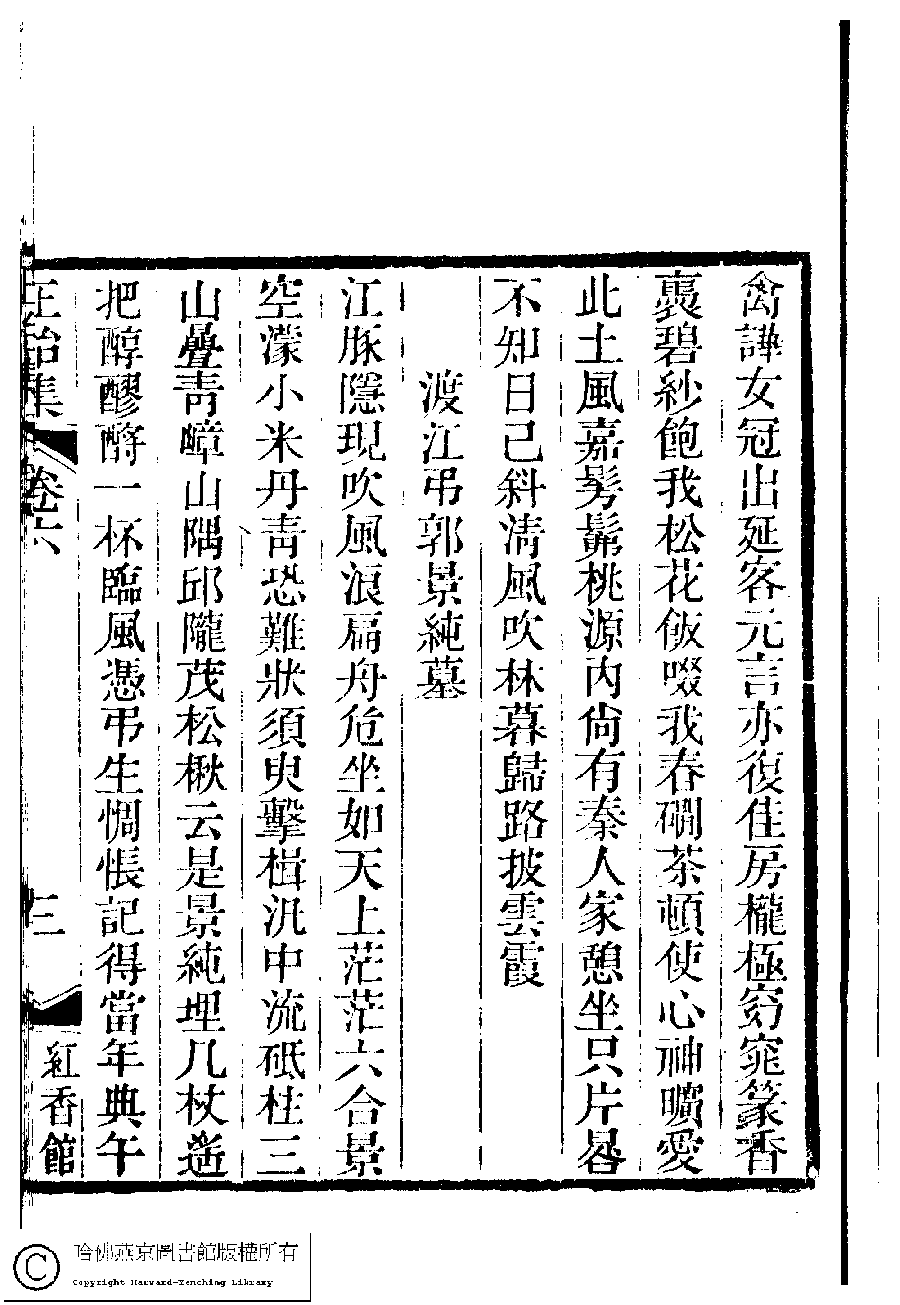 禽譁女冠出延客元言亦復佳房櫳極窈窕篆香
裊碧紗飽我松花飯啜我春磵茶頓使心神曠愛
此土風嘉髣髴桃源內尙有秦人家憩坐只片晷
不知日已斜淸風吹林暮歸路披雲霞
渡江弔郭景純墓
江豚隱現吹風浪扁舟危坐如天上茫茫六合景
空濛小米丹靑恐難狀須臾擊楫汎中流砥柱三
山疊靑嶂山隅邱隴茂松楸云是景純埋几杖遙
把醇醪酹一杯臨風憑弔生惆悵記得當年典午
卷六
三
紅香館
哈佛燕京圖書館版權所有
Copyright Harvard-Yenching Library